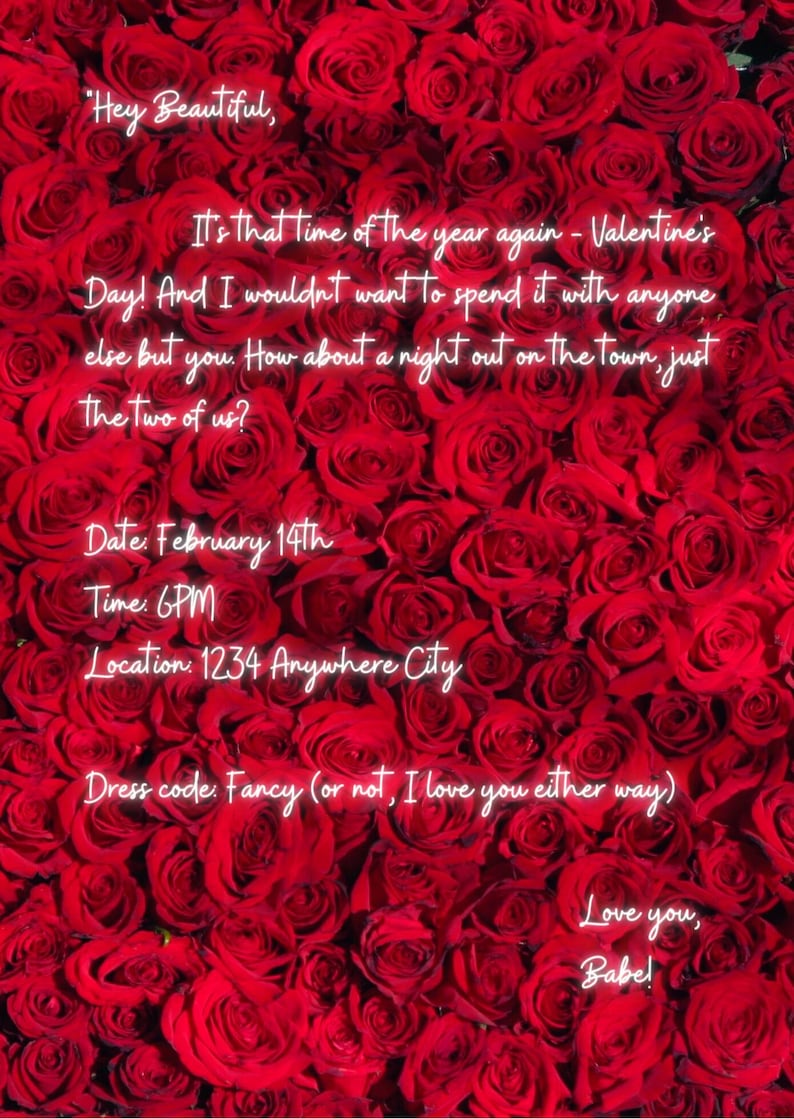 "Hey Beautiful,
It's that time of the year again - Valentine's
Day! And I wouldn't want to spend it with anyone
else but you. How about a night out on the town, just
the two of us?
Date: February 14th
Time: 6PM
Location: 1234 Anywhere City
Dress code: Fancy (or not, I love you either way)
Love you,
Babe!